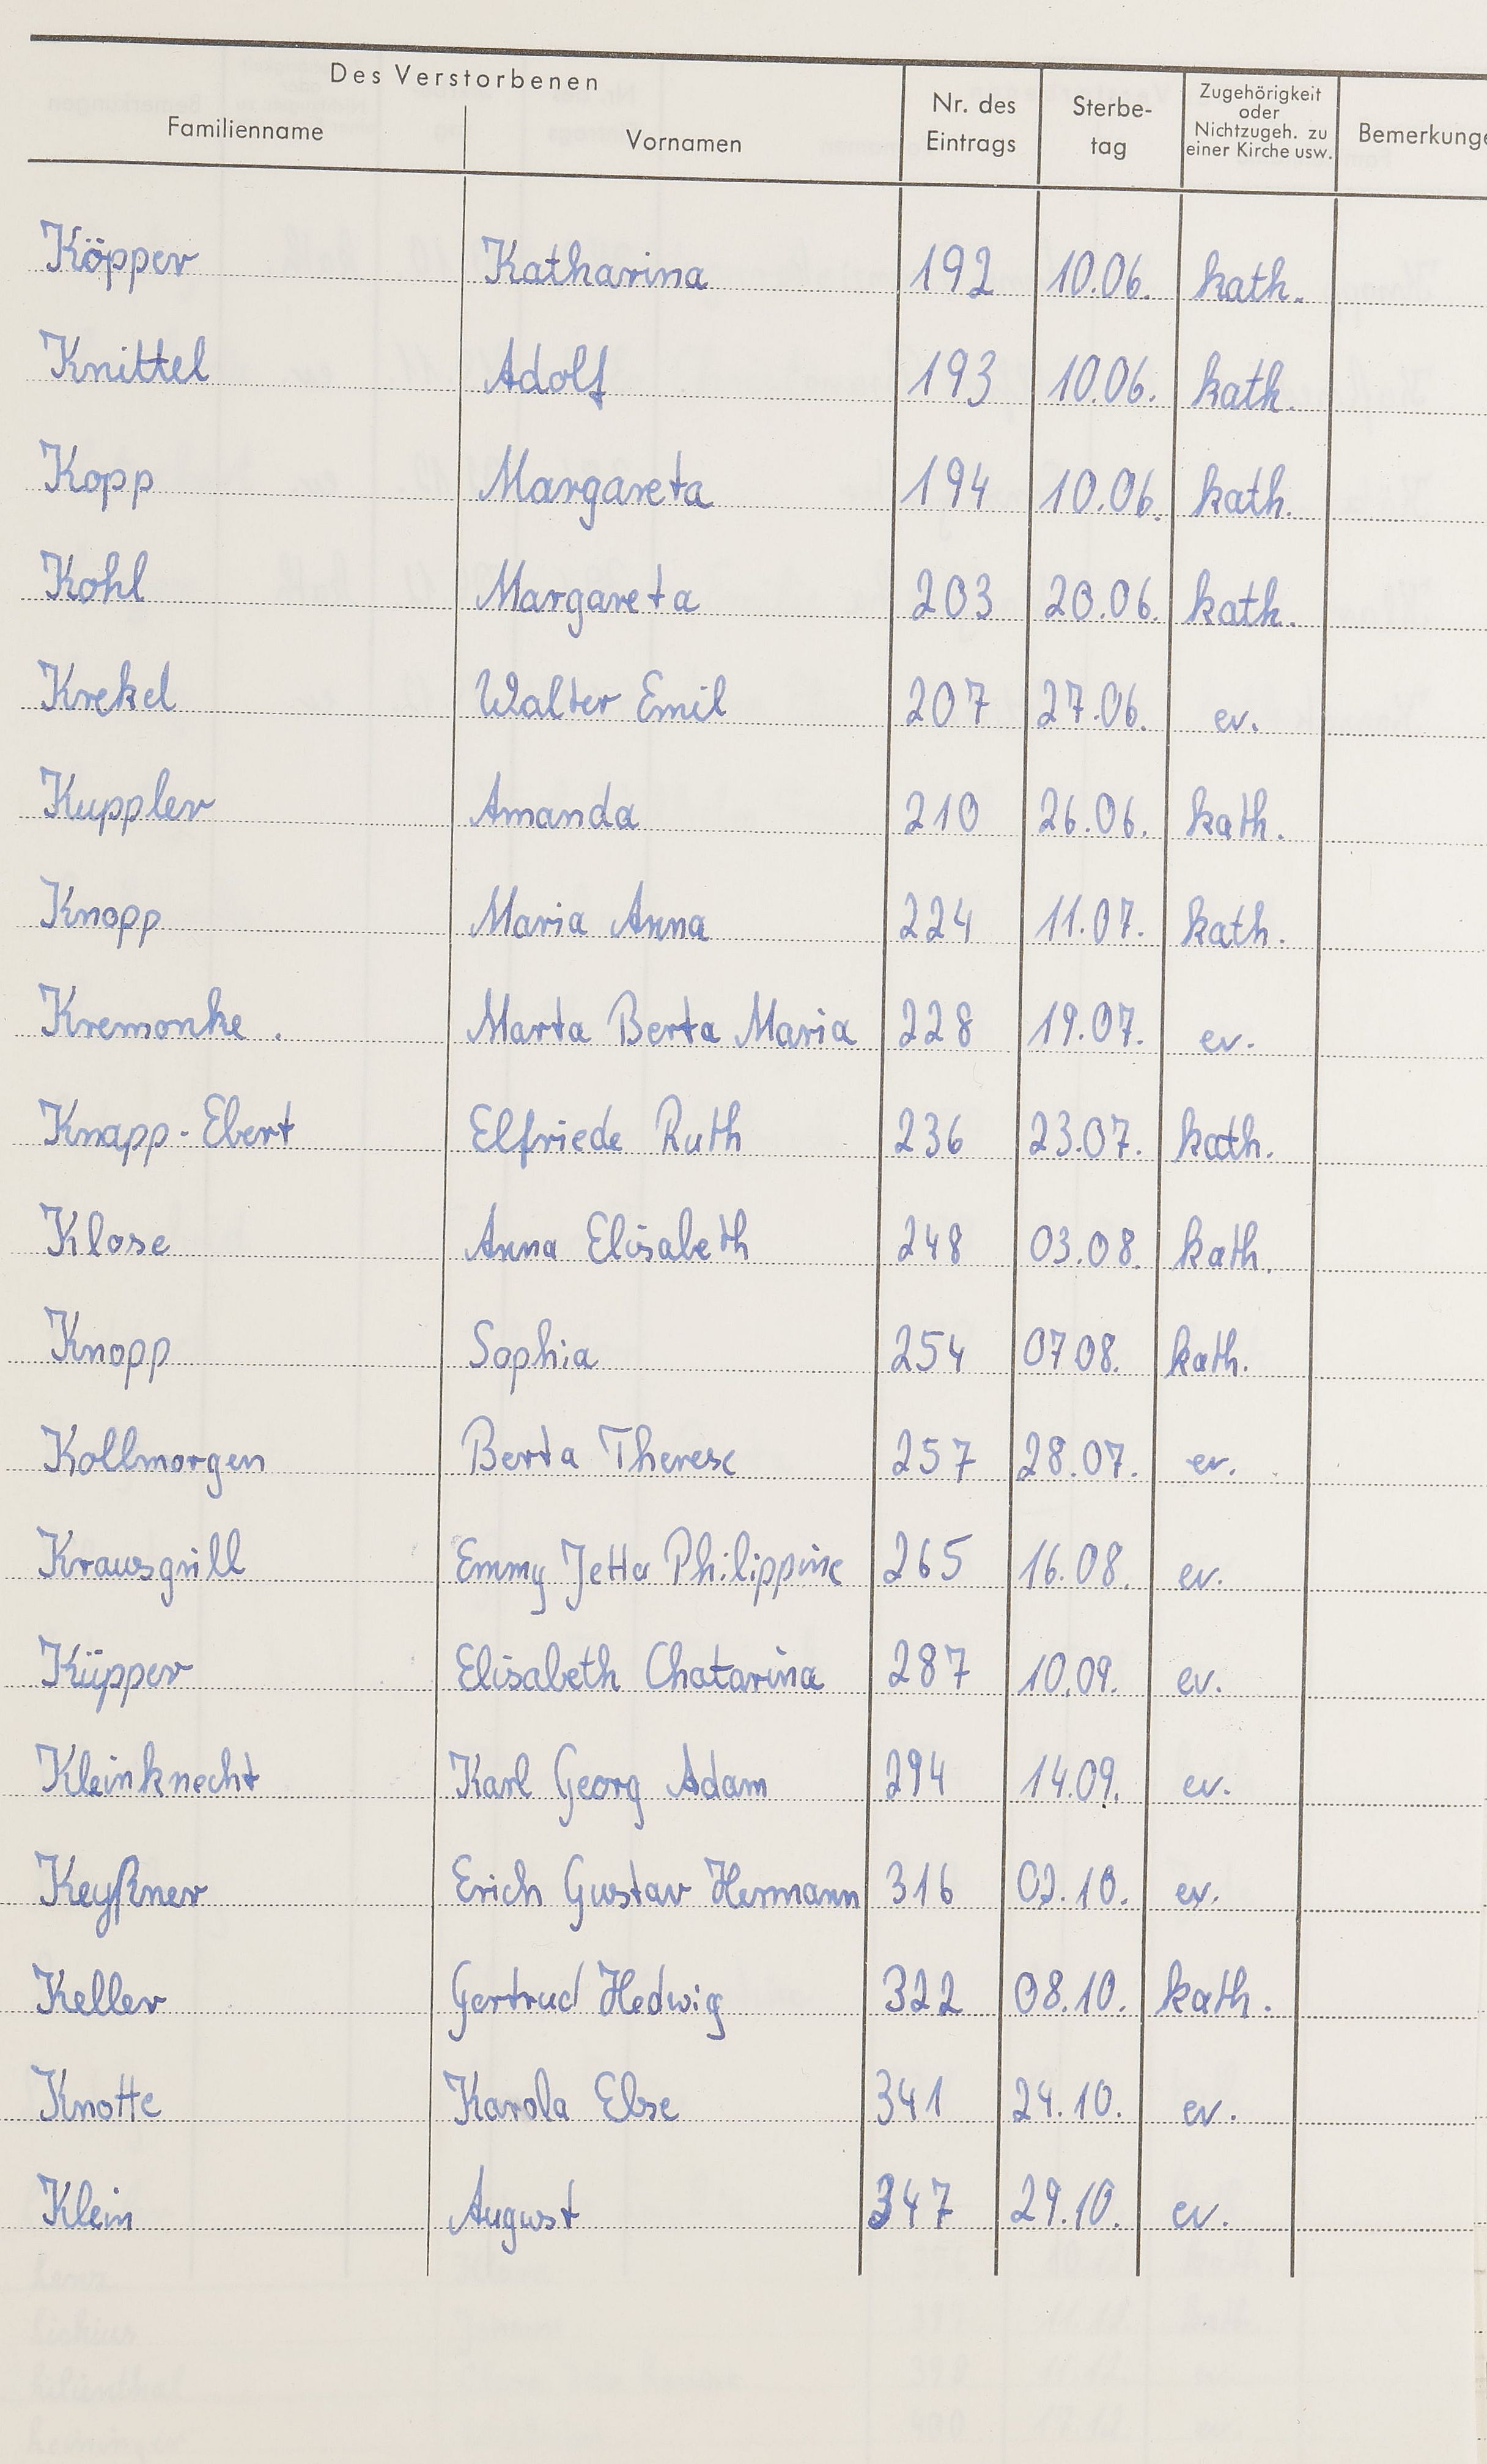 Des Verstorbenen
Familienname Vornamen Nr. des Eintrags Sterbe-tag Zugehörigkeit oder Nichtzugeh. zu einer Kirche usw. Bemerkunge
Köpper Katharina 192 10.06. kath.
Knittel Adolf 193 10.06. kath.
Kopp Margareta 194 10.06. kath.
Kohl Margareta 203 20.06. kath.
Krekel Walter Emil 207 27.06. ev.
Kuppler Amanda 210 26.06. kath.
Knopp Maria Anna 224 11.07. kath.
Kremonke . Marta Berta Maria 228 19.07. ev.
Knapp-Ebert Elfriede Ruth 236 23.07. kath.
Klose Anna Elisabeth 248 03.08. kath.
Knopp Sophia 254 07 08. kath.
Kollmorgen Berta Therese 257 28.07. ev.
Krausgrill Emmy Jetta Philippine 265 16.08. ev.
Küpper Elisabeth Chatarina 287 10.09. ev.
Kleinknecht Karl Georg Adam 294 14.09. ev.
Keyßner Erich Gustav Hermann 316 02.10. ev.
Keller Gertrud Hedwig 322 08.10. kath.
Knotte Karola Else 341 24.10. ev.
Klein August 347 29.10. ev.